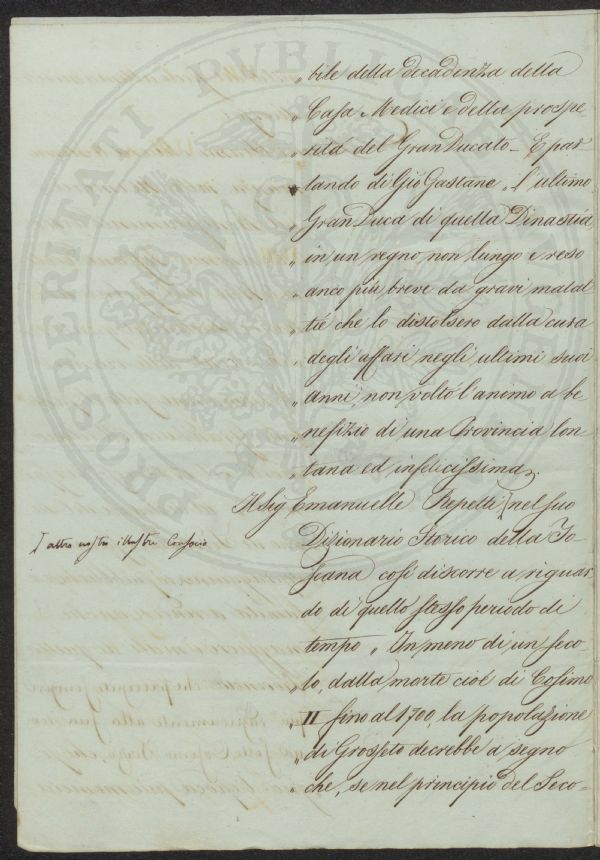 „ bile della decadenza della
„ Casa Medici e della prospe-
„ rità del GranDucato_ E par
„ lando di Gio Gastone „ l'ultimo
„ GranDuca di quella Dinastia,
„ in un regno non lungo e reso
„ anco più breve da gravi malat
„ tie che lo distolsero dalla cura
„ degli affari negli ultimi suoi
„ anni, non voltò l'animo a be
„ nefizio di una Provincia lon
„ tana ed infelicissima„.
Il Sig Emanuelle Repetti [ nel suo
[ altro nostro illustre Consocio
Dizionario Storico della To-
scana così discorre a riguar
do di quello stesso periodo di
tempo „ In meno di un seco
„ lo, dalla morte cioè di Cosimo
„ II fino al 1700, la popolazione
„ di Grosseto decrebbe a segno
„ che, se nel principio del Seco-
PROSPERITATI PVBLICAE